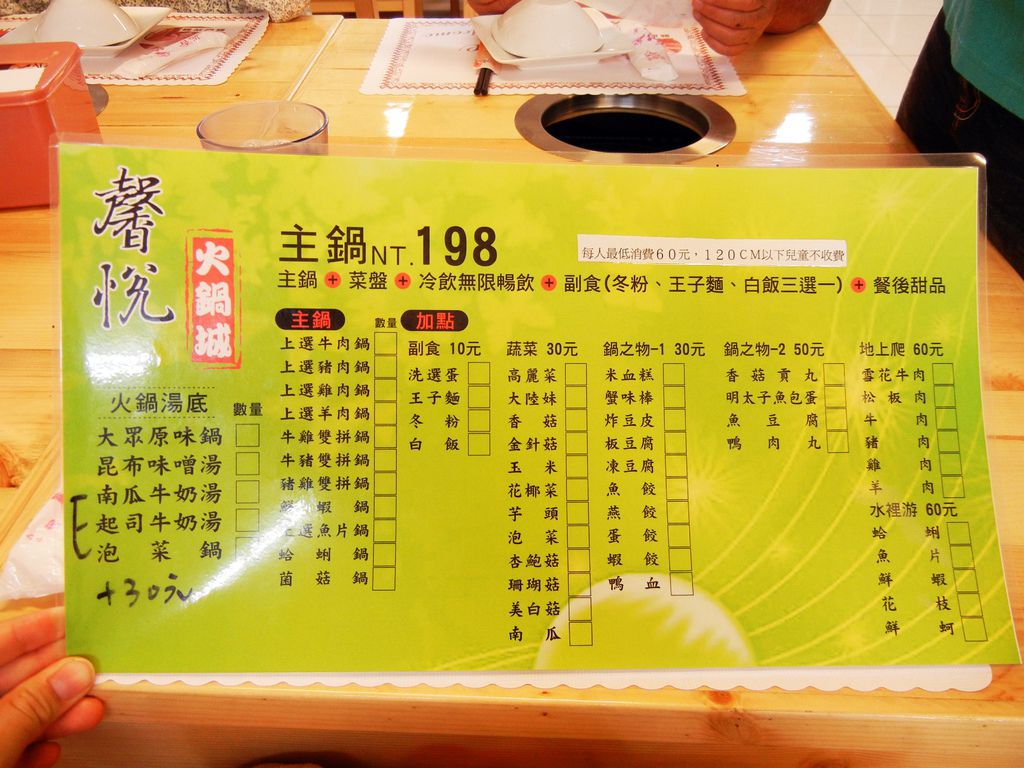 馨悅
火鍋城
主鍋NT.198
每人最低消費60元，120CM以下兒童不收費
主鍋+菜盤+冷飲無限暢飲+副食(冬粉、王子麵、白飯三選一)+餐後甜品
火鍋湯底 數量
大眾原味鍋
昆布味噌湯
南瓜牛奶湯
起司牛奶湯
泡菜鍋
+30元
主鍋 數量
上選牛肉鍋
上選豬肉鍋
上選雞肉鍋
上選羊肉鍋
牛雞雙拼鍋
牛豬雙拼鍋
豬雞雙拼鍋
鮮蝦鍋
上選魚片鍋
蛤蜊鍋
菌菇鍋
加點
副食 10元
洗選蛋
王子麵
冬粉
白飯
蔬菜 30元
高麗菜
大陸妹
香菇
金針菇
玉米
花椰菜
芋頭
泡菜
杏鮑菇
珊瑚菇
美白菇
南瓜
鍋之物-1 30元
米血糕
蟹味棒
炸豆皮
板豆腐
凍豆腐
魚餃
燕餃
蛋餃
蝦餃
鴨血
鍋之物-2 50元
香菇貢丸
明太子魚包蛋
魚豆腐
鴨肉丸
地上爬 60元
雪花牛肉
松板肉
牛肉
豬肉
雞肉
羊肉
水裡游 60元
蛤蜊
魚片
鮮蝦
花枝
鮮蚵